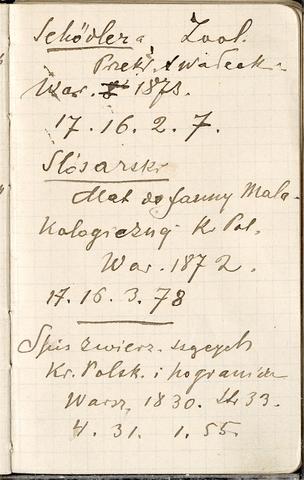 Schödlera Zool.
Przekł. Wałecki
War. 1873.
17. 16. 2. 7.
Slósarski
Mat do fauny Mala-
kologiczny Kr Pol.
War. 1872.
17. 16. 3. 78
Spis zwierz. ssących
Kr. Polsk. i pogranicza
Warsz. 1830. Str 33.
4. 31. 1. 55.